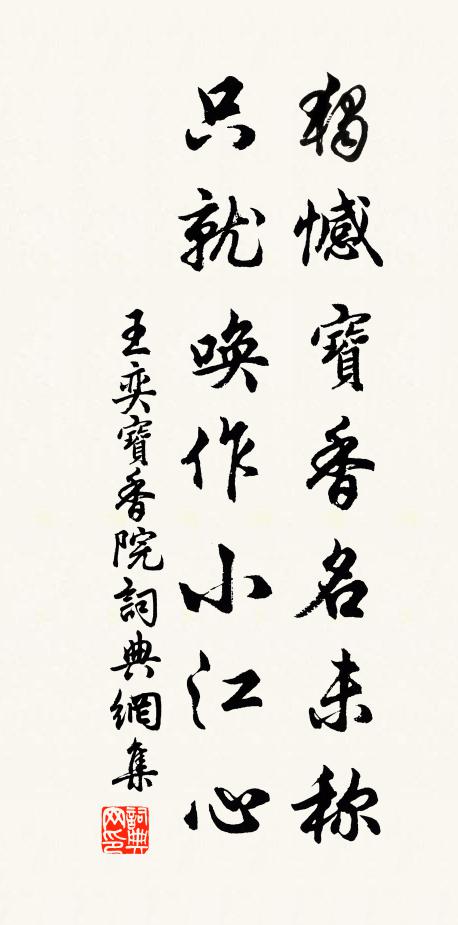 獨憾寶香名未称
只就唤作小江心
王奕寶香院詞典網集
詞典
网印